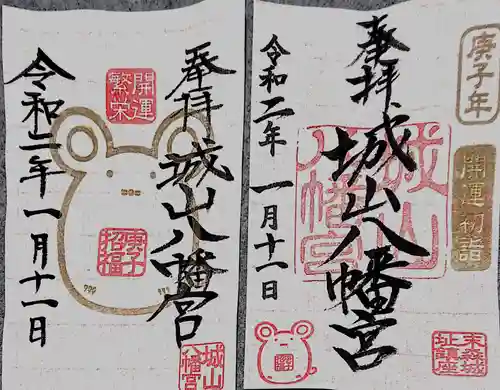 奉拝
城山八幡宮
令和二年一月十一日
開運
繁栄
庚子
招福
城山
八幡宮
庚子年
開運初詣
奉拝
城山八幡宮
城山
八幡宮
令和二年 一月十一日
末森城
址鎮座